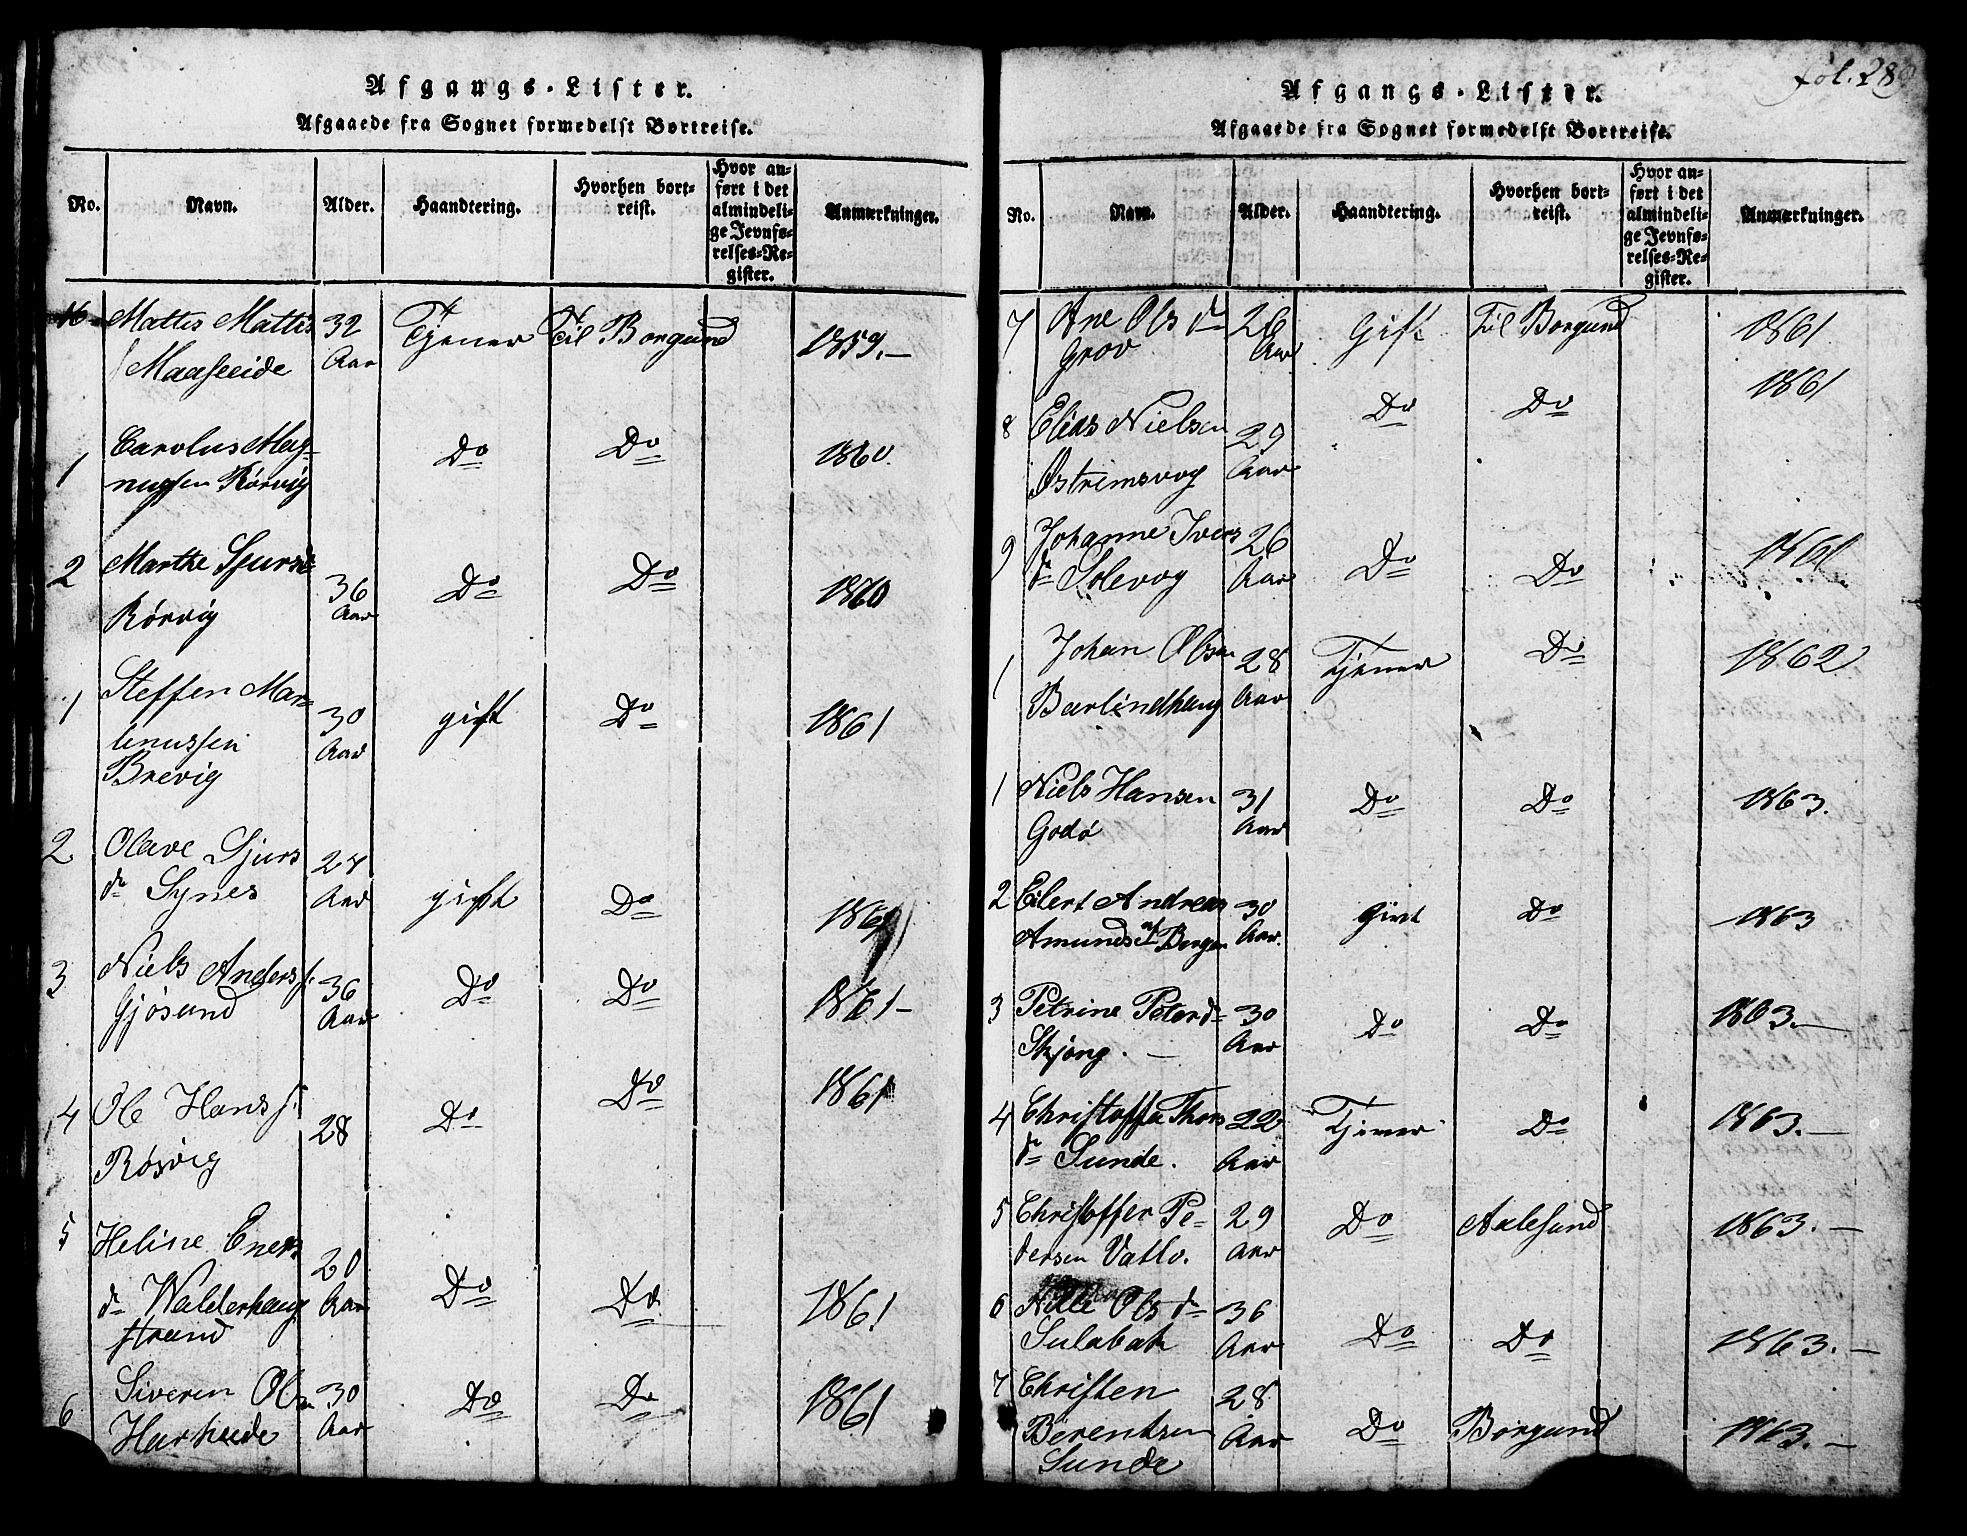 Afgangs-Lister.
Afgaaede fra Sognet formedelst Bortreise.
No. Navn. Alder. Haandtering. Hvorhen bortreist. Hvor anført i det almindelige Jevnførelses-Register. Anmærkninger.
16 Mattis Mattis 32 Tjener Til Borgund 1859.—
Maaseeide Aar
1 Carolus Mag- Do Do 1860.
nussen Rørvig
2 Marthe Sjursd 36 Do Do 1860
Rørvig Aar
1 Steffen Mar- 30 gift Do 1861
Aar
Brevig
2 Olave Sjurs gift Do 1861
dr Synes Aar
3 Niels Anderss. 36 Do Do 1861-
Gjøsund Aar
4 Ole Hanss. 28 Do Do 1861
Røsvig
5 Heline 20 Do Do 1861
dr Walderhaug Aar
strand
6 Siveren Olsn 30 Do Do 1861
Harheide Aar
fol. 28
Afgangs-Lister.
Afgaaede fra Sognet formedelst Bortreise.
No. Navn. Alder. Haandtering. Hvorhen bortreist. Hvor anført i det almindelige Jevnførelses-Register. Anmærkninger.
7 Ane Ols dr 26 Gift Til Borgund 1861
Grov Aar
8 Elias Nielsen 29 Do Do 1861
Østrimsvog Aar
9 Johanne Ivers 26 Do Do 1861
dr Solevog Aar
1 Johan Olsen 28 Tjener Do 1862
Barlindhaug Aar
1 Niels Hansen 31 Do Do 1863.
Godø Aar
2 Eilert Andreas 30 givt Do 1863
Amunds af Borgen Aar.
3 Petrine Peterdr 30 Do Do 1863.—
Skjong. — Aar
4 Christoffa Thors 22 Tjener Do 1863.—
dr Sunde. Aar
5 Christoffer Pe- 29 Do Aalesund 1863.—
dersen Vatlo. Aar
6 Nille Ols dr 36 Do Do 1863.—
Sulebak Aar
7 Christen 28 Do Borgund 1863.—
Berentsen Aar
Sunde